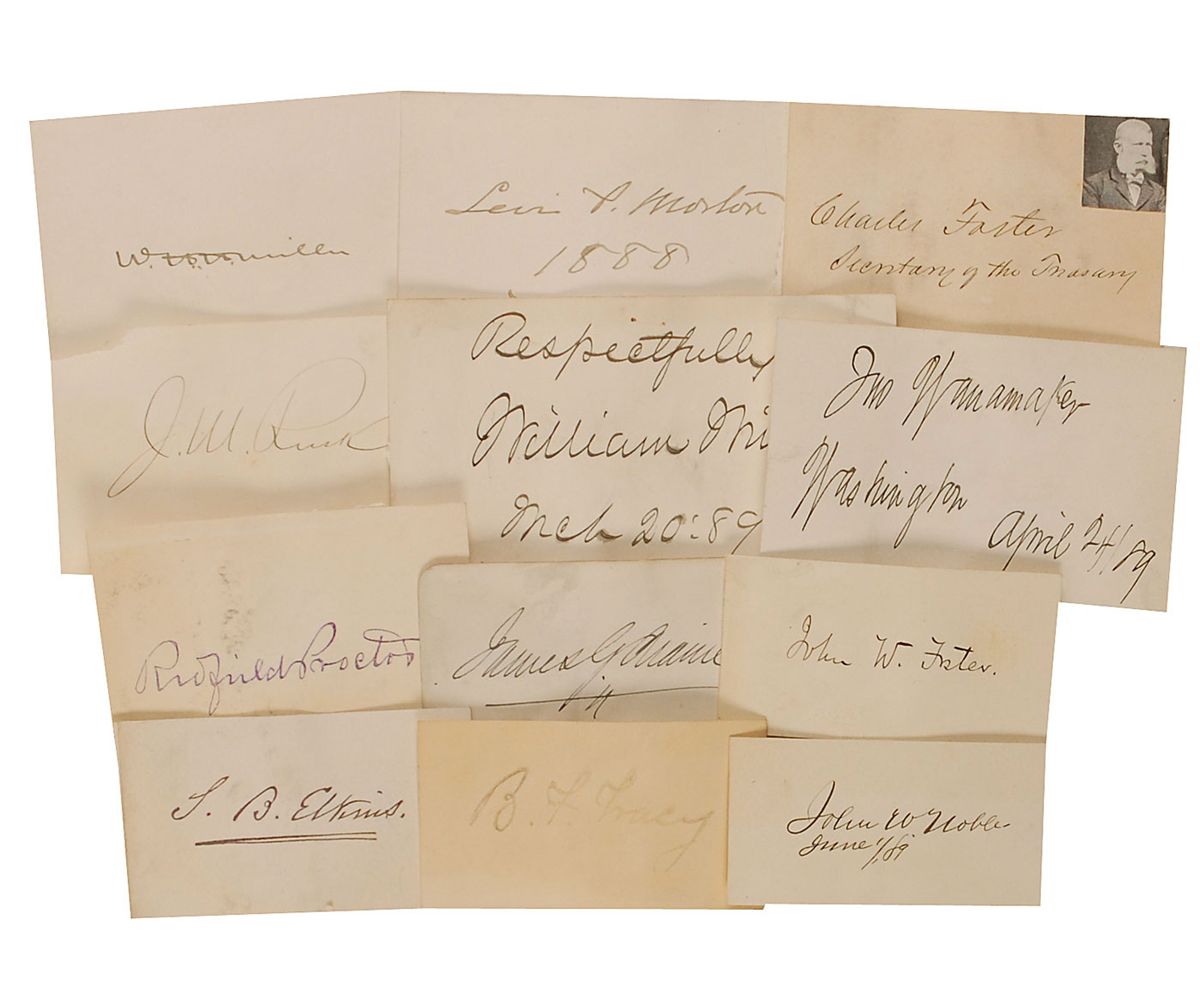 W. H. H. Miller
Levi P. Morton
1888
Charles Foster
Secretary of the Treasury
J. M. Rusk
Respectfully
William Wi
Mch 20: 89
Jno Wanamaker
Washington
April 24/89
Redfield Proctor
James G Blaine
S. B. Elkins.
B. F. Tracy
John W. Foster.
John W Noble
June 1/89